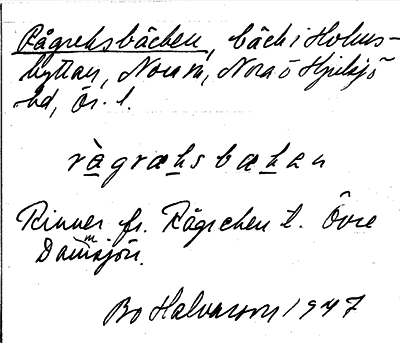 Rågreksbäcken, bäck i Holms-
hyttan, Nora m, Nora o Hjulsjö
hd, Ör. l.
rågræksbækan
Rinner fr. Rågrecken t. Övre
Dammsjön.
Bo Halvarson 1947